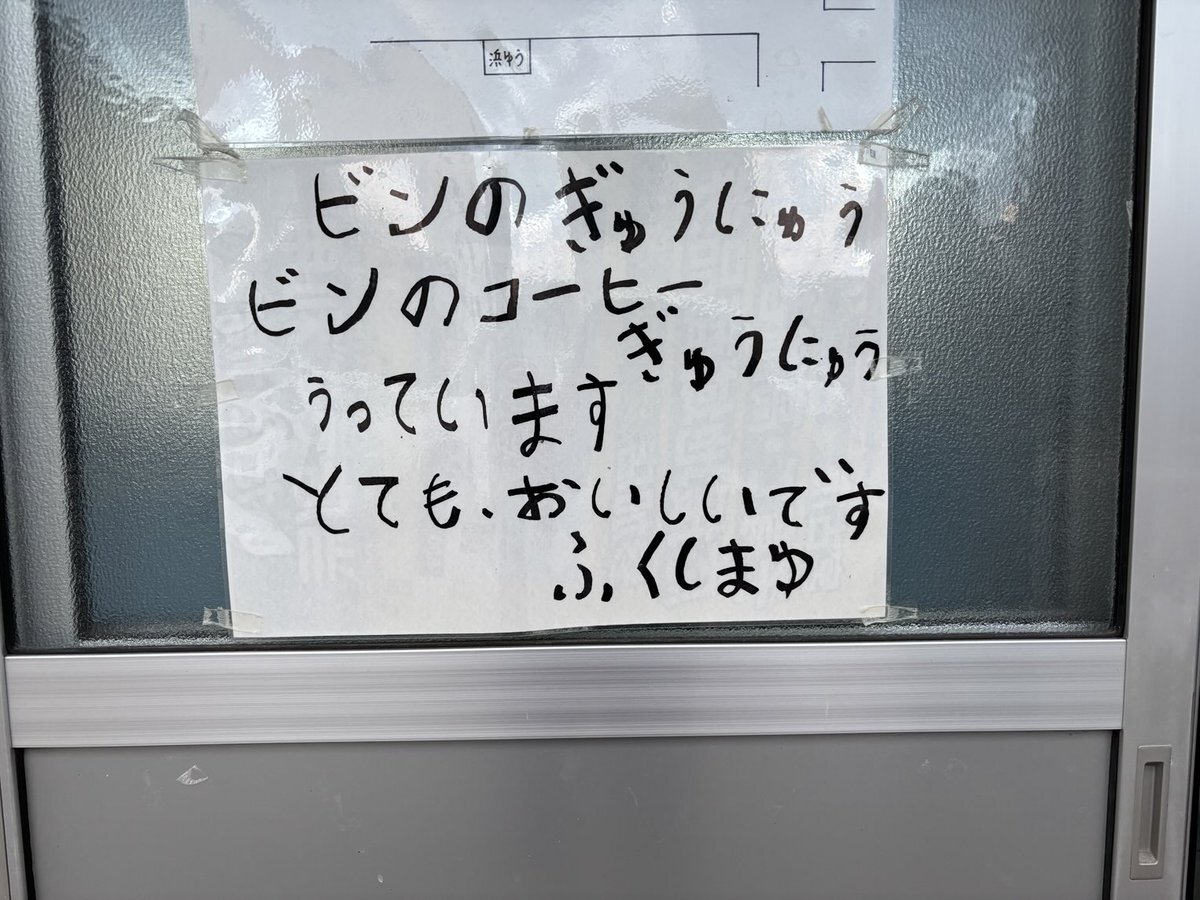 浜ゆう
ビンのぎゅうにゅう
ビンのコーヒー
ぎゅうにゅう
うっています
とても、おいしいです
ふくしまゆ